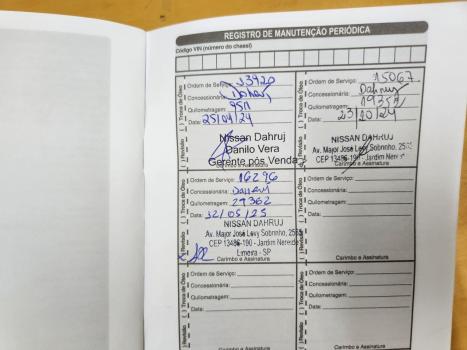 REGISTRO DE MANUTENÇÃO PERIÓDICA
Código VIN (número do chassi)
( ) Revisão ( ) Troca de Óleo
Ordem de Serviço:
Concessionária: Dahruj
Quilometragem: 9511
Data: 25/04/24
Nissan Dahruj
Danilo Vera
Gerente pós Venda
Carimbo e Assinatura
( ) Revisão ( ) Troca de Óleo
Ordem de Serviço: 15067
Concessionária: Dahruj
Quilometragem:
Data: 23/10/24
NISSAN DAHRUJ
Av. Major José Levy Sobrinho,
CEP 13486-190 - Jardim
Carimbo e Assinatura
( ) Revisão ( ) Troca de Óleo
Ordem de Serviço: 16296
Concessionária: Dahruj
Quilometragem: 29362
Data: 05/25
NISSAN DAHRUJ
Av. Major José Levy Sobrinho,
CEP 13486-190 - Jardim
Limeira - SP
Carimbo e Assinatura
( ) Revisão ( ) Troca de Óleo
Ordem de Serviço:
Concessionária:
Quilometragem:
Data:
Carimbo e Assinatura
( ) Revisão ( ) Troca de Óleo
Ordem de Serviço:
Concessionária:
Quilometragem:
Data:
( ) Revisão ( ) Troca de Óleo
Ordem de Serviço:
Concessionária:
Quilometragem:
Data: